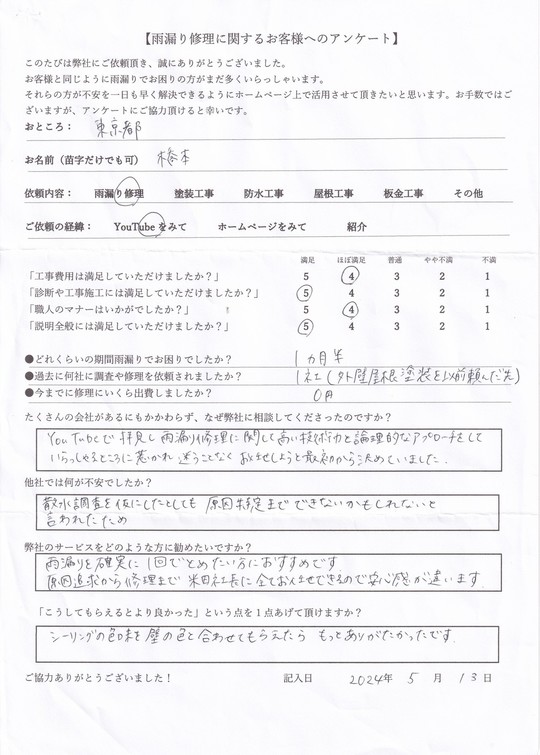 【雨漏り修理に関するお客様へのアンケート】
このたびは弊社にご依頼頂き、誠にありがとうございました。
お客様と同じように雨漏りでお困りの方がまだ多くいらっしゃいます。
それらの方が不安を一日も早く解決できるようにホームページ上で活用させて頂きたいと思います。お手数ではご
ざいますが、アンケートにご協力頂けると幸いです。
おところ： 東京都
お名前（苗字だけでも可） 橋本
依頼内容： 雨漏り修理 塗装工事 防水工事 屋根工事 板金工事 その他
ご依頼の経緯： YouTubeをみて ホームページをみて 紹介
満足 ほぼ満足 普通 やや不満 不満
「工事費用は満足していただけましたか？」 5 4 3 2 1
「診断や工事施工には満足していただけましたか？」 5 4 3 2 1
「職人のマナーはいかがでしたか？」 5 4 3 2 1
「説明全般には満足していただけましたか？」 5 4 3 2 1
●どれくらいの期間雨漏りでお困りでしたか？ 1ヵ月半
●過去に何社に調査や修理を依頼されましたか？ 1社(外壁屋根塗装を以前頼んだ先)
●今までに修理にいくら出費しましたか？ 0円
たくさんの会社があるにもかかわらず、なぜ弊社に相談してくださったのですか？
YouTubeで拝見し雨漏り修理に関して高い技術力と論理的なアプローチをして
いらっしゃるところに惹かれ迷うことなくお任せしようと最初から決めていました.
他社では何が不安でしたか？
散水調査を仮にしたとしても原因特定までできないかもしれないと
言われたため
弊社のサービスをどのような方に勧めたいですか？
雨漏りを確実に1回でとめたい方におすすめです
原因追求から修理まで米田社長に全てお任せできるので安心感が違います.
「こうしてもらえるとより良かった」という点を１点あげて頂けますか？
シーリングの色味を壁の色と合わせてもらえたらもっとありがたかったです.
ご協力ありがとうございました！ 記入日 2024年 5 月 13日